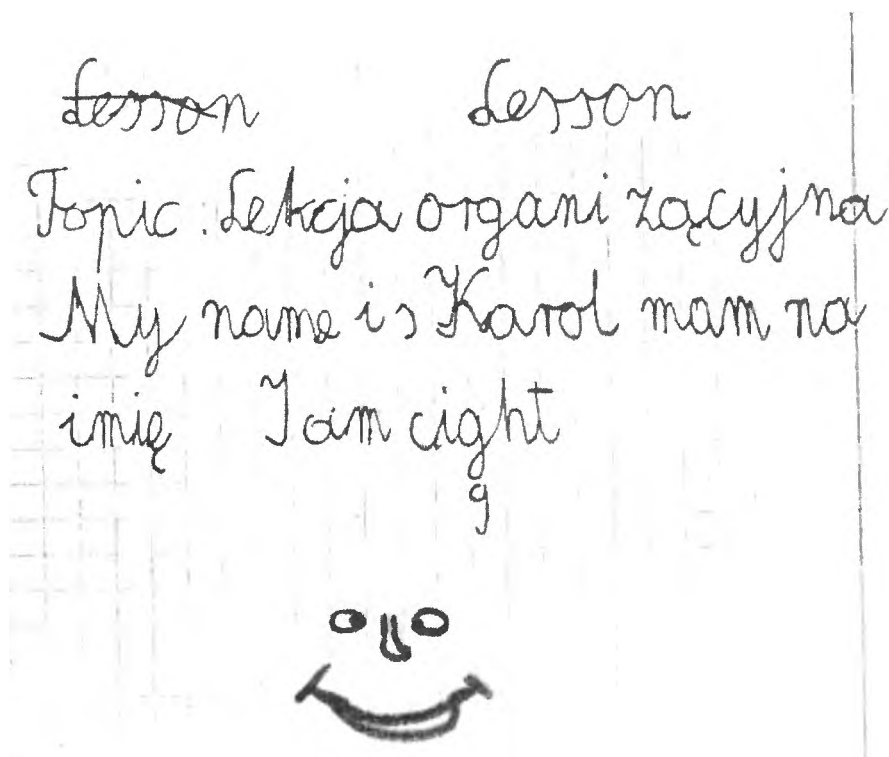 Lesson Lesson
Topic: Lekcja organizącyjna
My name is Karol mam na
imię I am cight
9